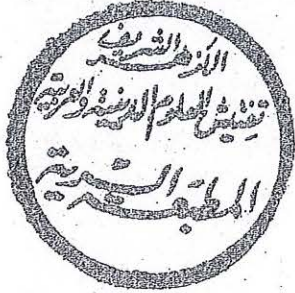 الأزهر الشريف
تفتيش العلوم الدينية والعربية
المطبعة السرية